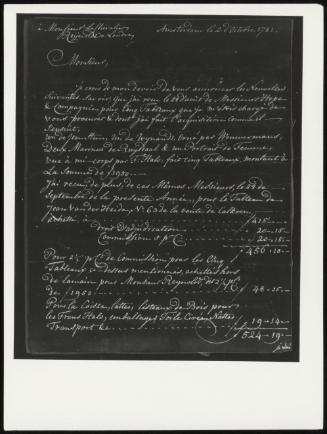 à Monsieur Le Chevalier
Reynolds a Londres
Amsterdam le 2 d'Octobre 1781.
Monsieur,
Je crois de mon devoir de vous annoncer les Nouvelles
Suivantes. Savoir, que j'ai reçu le de Messieurs Hope
& Compagnie, pour Cinq Tableaux que je
vous procurer & dont j'ai fait l'acquisition comme il
Ensuit.
un de Jean Steen, un de Wynands, orné par Wouwermans,
Deux Marines de & un Portrait de Femme,
vue à mi-corps par F. Hals, fait cinq Tableaux montant à
La Somme de f1950.—
J'ai reçu de plus, de ces Mêmes Messieurs, le de
Septembre de la presente Année, pour le Tableau de
Jean van der Heiden, No 63 de la vente de
Acheté à f 415.—
Droit d'adjudication 20.-15.—
Commission 5 p C 20.-15.—
f 456.-10.—
Pour 2½ p C de Commission pour les Cinq
Tableaux ci-dessus mentionnés, achettés hors
de la main pour Monsieur Reynolds, de 2½ p C
de f1950 f 48.-15.—
Pour la Caisse, lattes, de Bois pour
les Frans Hals, emballage, Toile Cirée, Nattes
Transport &c. 19-14—
f 524-19—